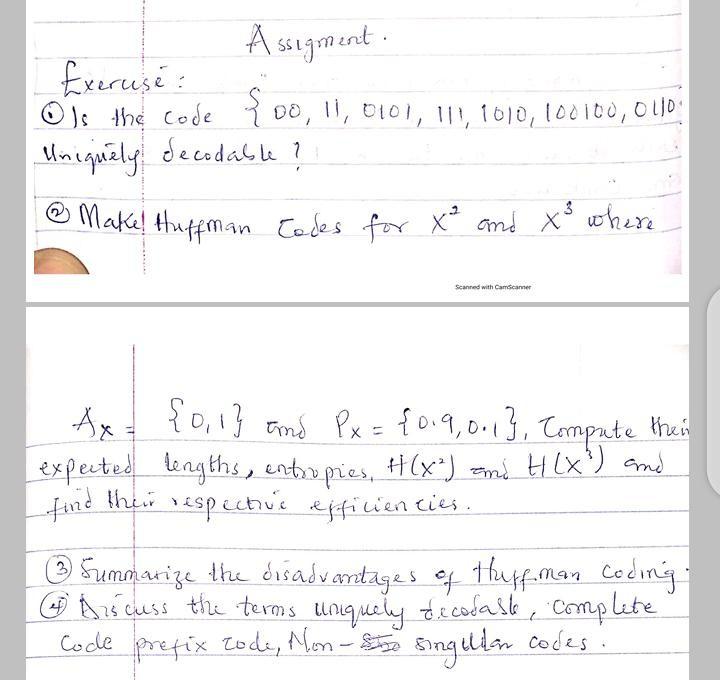 Assigment.
Exercise:
① Is the code { 00, 11, 0101, 111, 1010, 100100, 0110
Uniquely decodable ?
② Make Huffman Codes for X² and X³ where
Scanned with CamScanner
Ax = {0,1} and Px = {0.9,0.1}, Compute their
expected lengths, entropies, H(X²) and H(X³) and
find their respective efficiencies.
③ Summarize the disadvantages of Huffman Coding.
④ Discuss the terms uniquely decodable, Complete
Code prefix code, Non- singular codes.